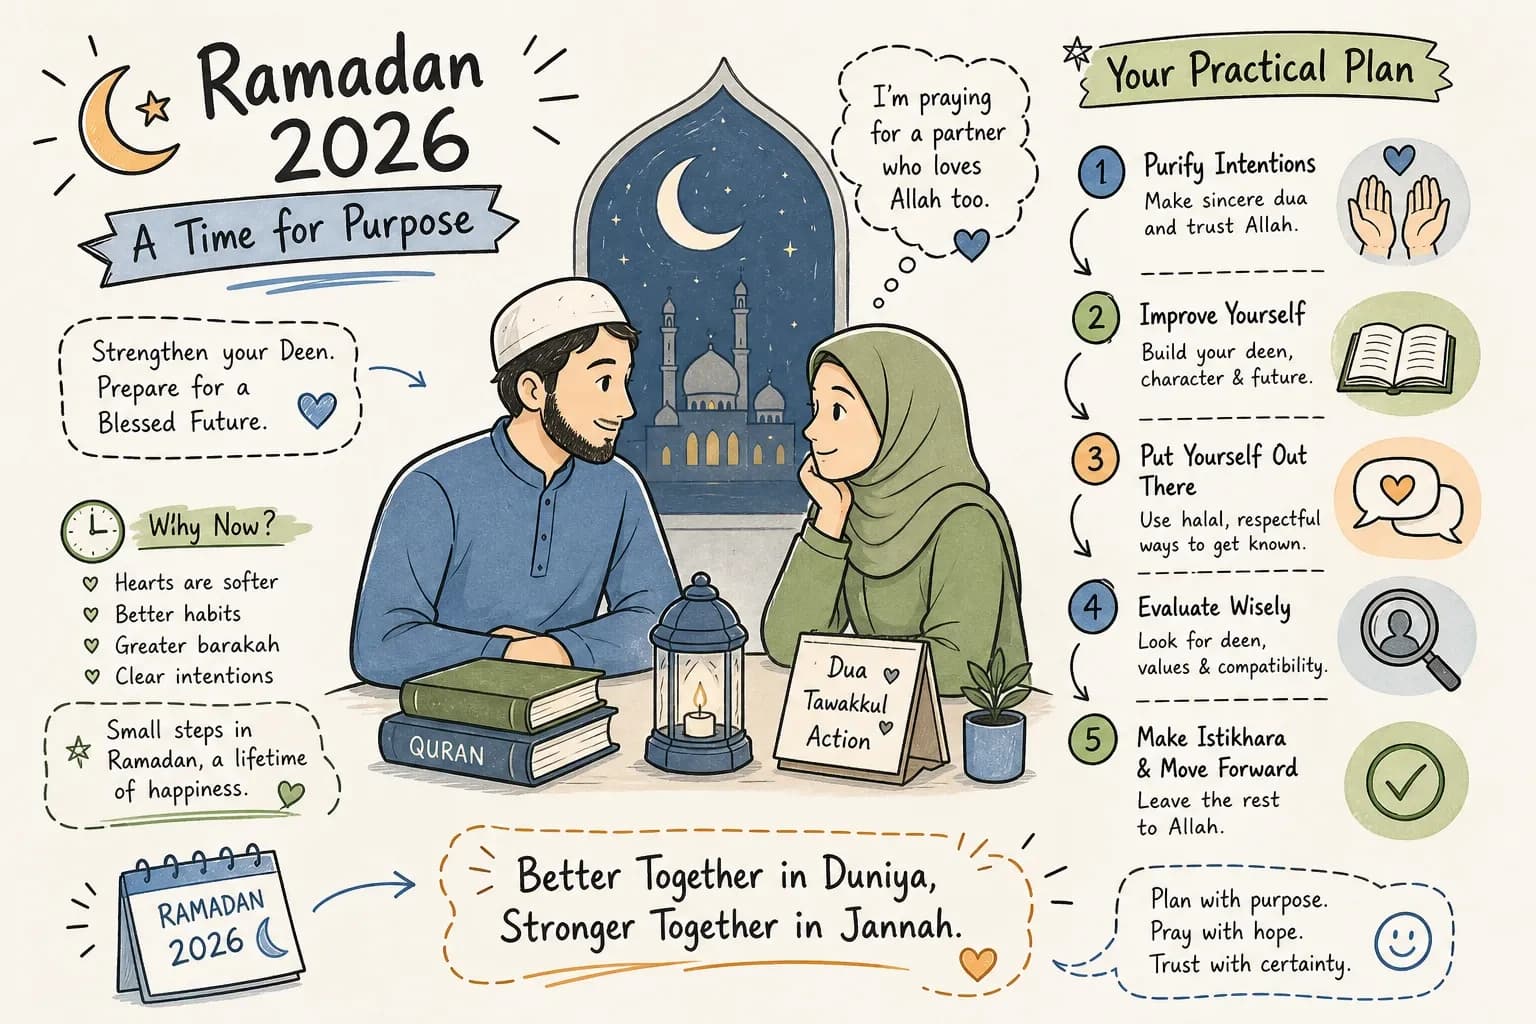 Ramadan
2026
A Time for Purpose
Strengthen your Deen.
Prepare for a
Blessed Future.
Why Now?
Hearts are softer
Better habits
Greater barakah
Clear intentions
Small steps in
Ramadan, a lifetime
of happiness.
RAMADAN
2026
I'm praying
for a partner
who loves
Allah too.
QURAN
Dua
Tawakkul
Action
Better Together in Duniya,
Stronger Together in Jannah.
Your Practical Plan
1 Purify Intentions
Make sincere dua
and trust Allah.
2 Improve Yourself
Build your deen,
character & future.
3 Put Yourself Out
There
Use halal, respectful
ways to get known.
4 Evaluate Wisely
Look for deen,
values & compatibility.
5 Make Istikhara
& Move Forward
Leave the rest
to Allah.
Plan with purpose.
Pray with hope.
Trust with certainty.